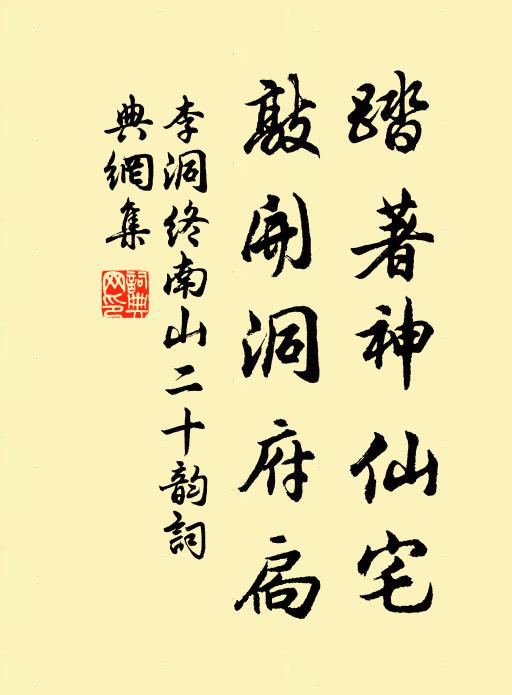 踏著神仙宅
敲開洞府扃
李洞終南山二十韵詞
典網集
詞典網印